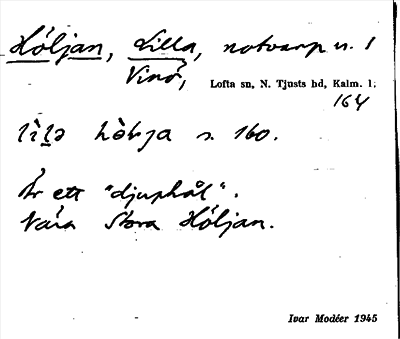 Höljan, Lilla, notvarp n. 1
Vinö,
Lofta sn, N. Tjusts hd, Kalm. l.
164
s. 160.
Är ett "djuphål".
Nära Stora Höljan.
Ivar Modéer 1945